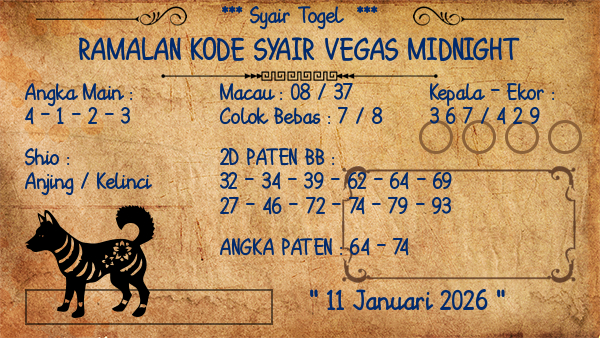 *** Syair Togel ***
RAMALAN KODE SYAIR VEGAS MIDNIGHT
Angka Main :
4 - 1 - 2 - 3
Macau : 08 / 37
Colok Bebas : 7 / 8
Kepala - Ekor :
3 6 7 / 4 2 9
Shio :
Anjing / Kelinci
2D PATEN BB :
32 - 34 - 39 - 62 - 64 - 69
27 - 46 - 72 - 74 - 79 - 93
ANGKA PATEN : 64 - 74
" 11 Januari 2026 "